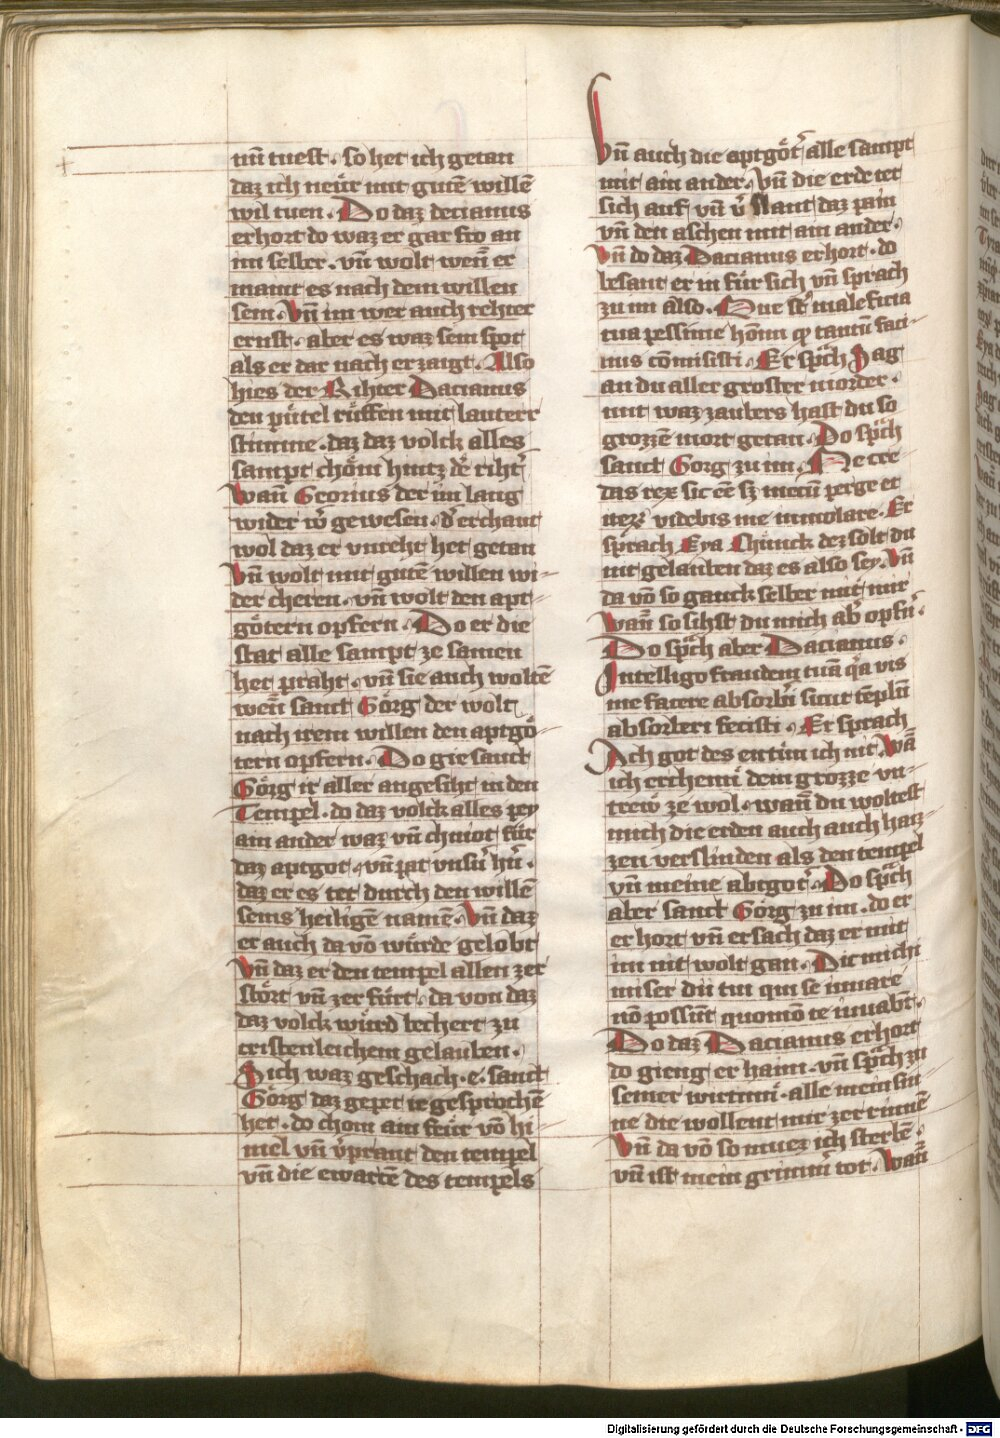 mi tuest · so het ich getan
daz ich neür mit gutē willē
wil tuen. Do daz decianus
erhort do waz er gar fro an
im selber · vn̄ wolt wen̄ er
maint es nach dem willen
sein. Vn̄ im wer auch rehter
ernst · aber es waz sein spot
als er dar nach erzaigt. Also
hies der Rihter Dacianus
den pütel rüffen mit lauterr
stimme · daz daz volck alles
sampt chöm hintz dē riht
wan̄ Georius der im lang
wider w̄ gewesen · d' erchant
wol daz er vnreht het getan
Vn̄ wolt mit gutē willen wi-
der cheren · vn̄ wolt den apt-
götern opfern. Do er die
stat alle sampt ze samen
het praht · vn̄ sie auch woltē
wen̄ sanct Görg der wolt
nach irem willen den aptgö
tern opfern. Do gie sanct
Görg ir aller angesiht in den
Tempel · do daz volck alles pey
ain ander waz vn̄ chniot für
daz aptgot · vn̄ pat vnsn̄ hn̄ ·
daz er es tet durch den willē
seins heiligē namē. Vn̄ daz
er auch da vō würde gelobt
Vn̄ daz er den tempel allen zer
stört vn̄ zer fürt · da von daz
daz volck würd bechert zu
cristenleichem gelauben ·
Sich waz geschach · e · sanct
Görg daz gepet ie gesprochē
het · do chom ain feür vō hi-
mel vn̄ v̄prant den tempel
vn̄ die ewartē des tempels
Vn̄ auch die aptgöt' alle sampt
mit ain ander. Vn̄ die erde tet
sich auf vn̄ v̄slant daz pain
vn̄ den aschen mit ain ander ·
Vn̄ do daz Dacianus erhort · do
besant er in für sich vn̄ sprach
zu im also. Que st̄ maleficia
tua pessime hōmī qz tantū faci-
nus cōmisisti. Er spͣch Sag
an du aller groster morder ·
mit waz zaubers hast du so
grozzē mort getan. Do spͣch
sanct Gorg zu im. Ne cre
das rex sic eē sz mecū perge et
iter' videbis me immolare. Er
sprach Eya Chünck dez solt du
nit gelauben daz es also sey. Vn̄
da vō so ganck selber mit mir
wan̄ so sihst du mich ab' opfn̄ ·
Do spͣch aber Dacianus ·
Intelligo fraudem tuā qͣa vis
me facere absorb'i sicut tēplū
absorberi fecisti. Er sprach
Ach got des entün ich nit. Wā
ich erchenn dein grozze vn-
trew ze wol · wan̄ du woltest
mich die erden auch auch haiz-
zen verslinden als den tempel
vn̄ meine abtgot'. Do spͣch
aber sanct Görg zu im · do er
er hort vn̄ ersach daz er mit
im nit wolt gan. Dic michi
miser dii tui qui se iuuare
nō possūt quomō te iuuabt̄ ·
Do daz Dacianus erhort
do gieng er haim · vn̄ spͣch zu
seiner wirtinn · alle mein sin
ne die wollent mir zer rinnē
Vn̄ da vō so muez ich sterbē ·
vn̄ ist mein grimm' tot. Wan̄
Digitalisierung gefördert durch die Deutsche Forschungsgemeinschaft - DFG